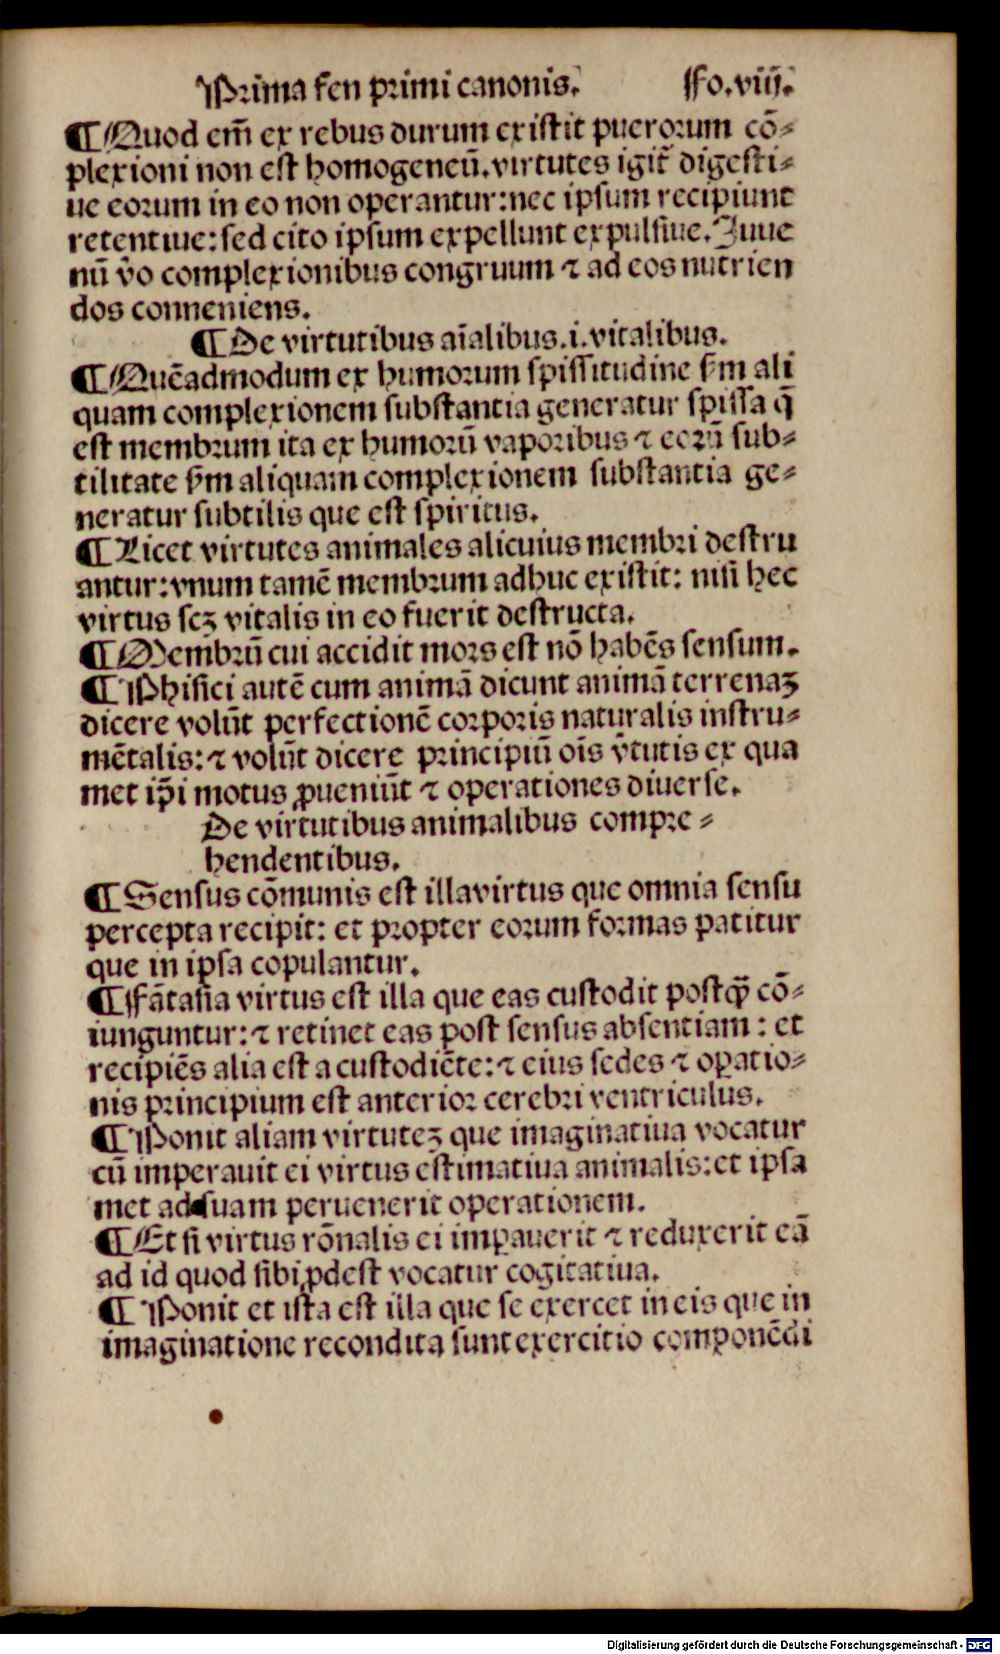 Prima fen primi canonis. Fo.viij.
¶ Quod em̄ ex rebus durum existit puerorum cō⸗
plexioni non est homogeneū.virtutes igit̄ digesti⸗
ue eorum in eo non operantur:nec ipsum recipiunt
retentiue:sed cito ipsum expellunt expulsiue.Iuue
nū v̄o complexionibus congruum ⁊ ad eos nutrien
dos conneniens.
¶ De virtutibus aīalibus.i.vitalibus.
¶ Quēadmodum ex humorum spissitudine s̄m ali
quam complexionem substantia generatur spissa q̄
est membrum ita ex humorū vaporibus ⁊ eorū sub⸗
tilitate s̄m aliquam complexionem substantia ge⸗
neratur subtilis que est spiritus.
¶ Licet virtutes animales alicuius membri destru
antur:vnum tamē membrum adhuc existit: nisi hec
virtus scꝫ vitalis in eo fuerit destructa.
¶ Membrū cui accidit mors est nō habēs sensum.
¶ Phisici autē cum animā dicunt animā terrenaꝫ
dicere volūt perfectionē corporis naturalis instru⸗
mētalis:⁊ volūt dicere principiū oīs v̄tutis ex qua
met ip̄i motus ꝓueniūt ⁊ operationes diuerse.
De virtutibus animalibus compre⸗
hendentibus.
¶ Sensus cōmunis est illavirtus que omnia sensu
percepta recipit: et propter eorum formas patitur
que in ipsa copulantur.
¶ Fātasia virtus est illa que eas custodit postqꝫ̄ cō⸗
iunguntur:⁊ retinet eas post sensus absentiam : et
recipiēs alia est a custodiēte:⁊ eius sedes ⁊ oꝑatio⸗
nis principium est anterior cerebri ventriculus.
¶ Ponit aliam virtuteꝫ que imaginatiua vocatur
cū imperauit ei virtus estimatiua animalis:et ipsa
met ad suam peruenerit operationem.
¶ Et si virtus rōnalis ei imꝑauerit ⁊ reduxerit eā
ad id quod sibi ꝓdest vocatur cogitatiua.
¶ Ponit et ista est illa que se exercet in eis que in
imaginatione recondita sunt exercitio componēdi
Digitalisierung gefördert durch die Deutsche Forschungsgemeinschaft - DFG